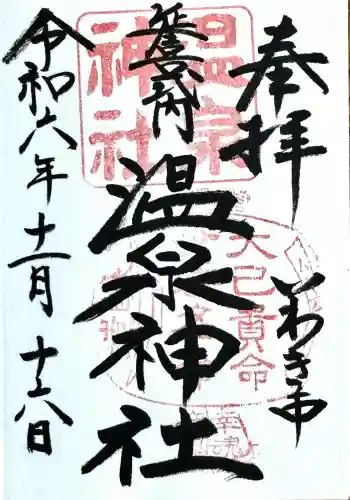 奉拝
いわき市
延喜式内
温泉神社
令和六年十一月十六日
温泉神社
大己貴命